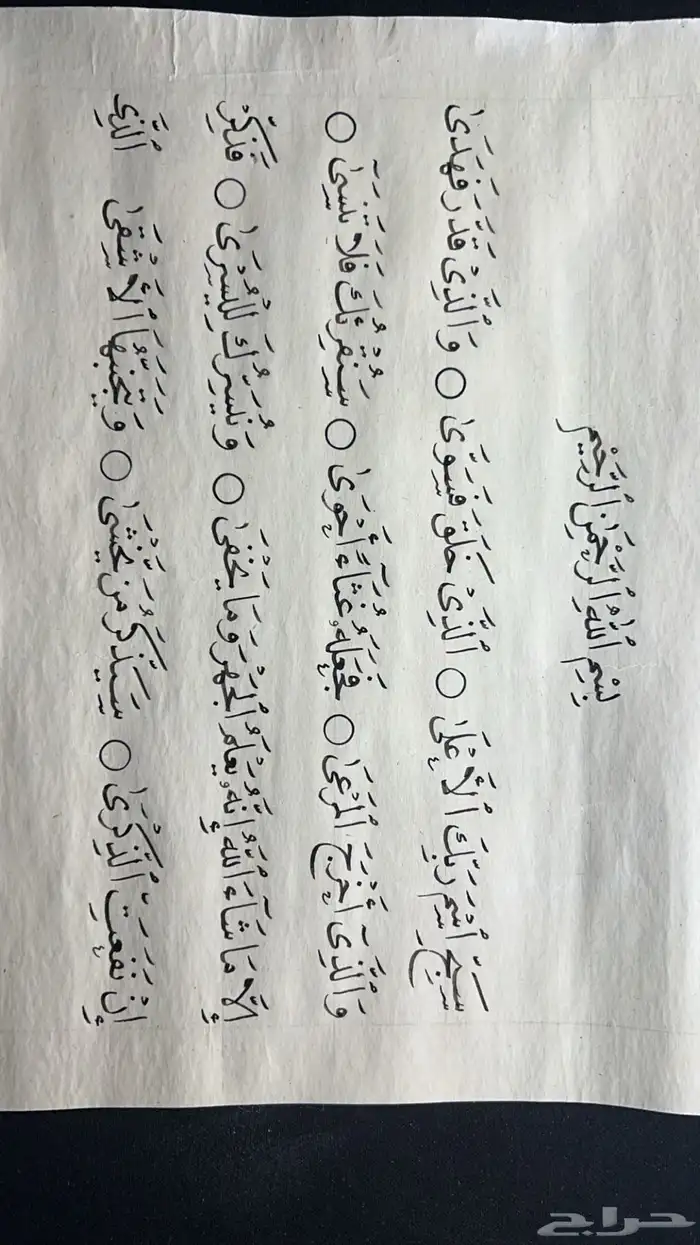 بِسْمِ ٱللَّهِ ٱلرَّحْمَٰنِ ٱلرَّحِيْمِ
سَبِّحِ ٱسْمَ رَبِّكَ ٱلْأَعْلَىٰ ○ ٱلَّذِىْ خَلَقَ فَسَوَّىٰ ○ وَٱلَّذِىْ قَدَّرَ فَهَدَىٰ
وَٱلَّذِىٓ أَخْرَجَ ٱلْمَرْعَىٰ ○ فَجَعَلَهُۥ غُثَآءً أَحْوَىٰ ○ سَنُقْرِئُكَ فَلَا تَنسَىٰٓ ○
إِلَّا مَا شَآءَ ٱللَّهُ إِنَّهُۥ يَعْلَمُ ٱلْجَهْرَ وَمَا يَخْفَىٰ ○ وَنُيَسِّرُكَ لِلْيُسْرَىٰ ○ فَذَكِّرْ
إِنْ نَفَعَتِ ٱلذِّكْرَىٰ ○ سَيَذَّكَّرُ مَن يَخْشَىٰ ○ وَيَتَجَنَّبُهَا ٱلْأَشْقَىٰ ٱلَّذِى
حراج